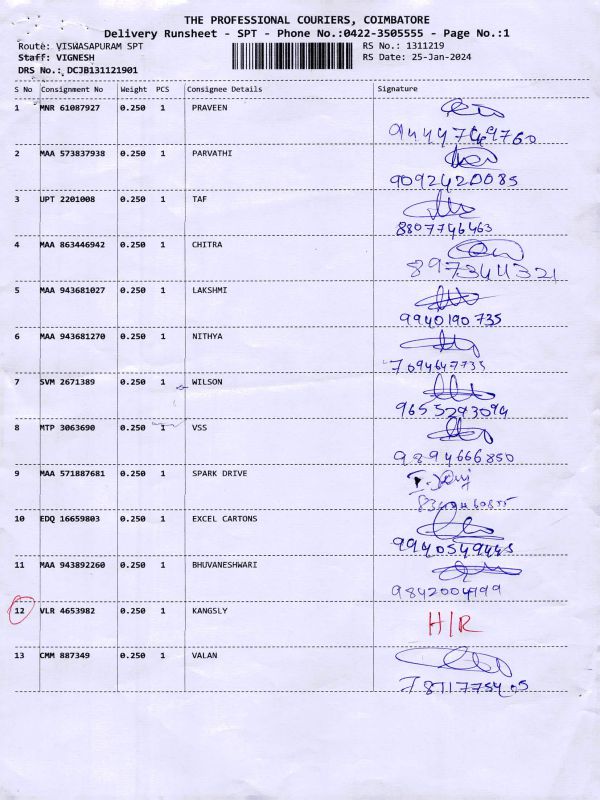 THE PROFESSIONAL COURIERS, COIMBATORE
Delivery Runsheet - SPT - Phone No.:0422-3505555 - Page No.:1
Route: VISWASAPURAM SPT RS No.: 1311219
Staff: VIGNESH RS Date: 25-Jan-2024
DRS No.: DCJB131121901
S No Consignment No Weight PCS Consignee Details Signature
1 MNR 61087927 0.250 1 PRAVEEN
2 MAA 573837938 0.250 1 PARVATHI
9092420085
3 UPT 2201008 0.250 1 TAF
8807746463
4 MAA 863446942 0.250 1 CHITRA
8973441321
5 MAA 943681027 0.250 1 LAKSHMI
9940190735
6 MAA 943681270 0.250 1 NITHYA
7094647735
7 SVM 2671389 0.250 1 WILSON
9655293094
8 MTP 3063690 0.250 1 VSS
9894666850
9 MAA 571887681 0.250 1 SPARK DRIVE
10 EDQ 16659803 0.250 1 EXCEL CARTONS
9940549445
11 MAA 943892260 0.250 1 BHUVANESHWARI
9842004199
12 VLR 4653982 0.250 1 KANGSLY H/R
13 CMM 887349 0.250 1 VALAN